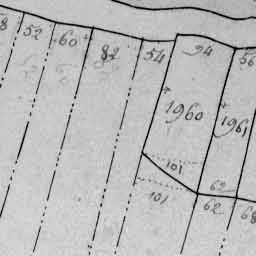 8 52 60 82 54 94 56
1960 1961
101
101 62 62 68